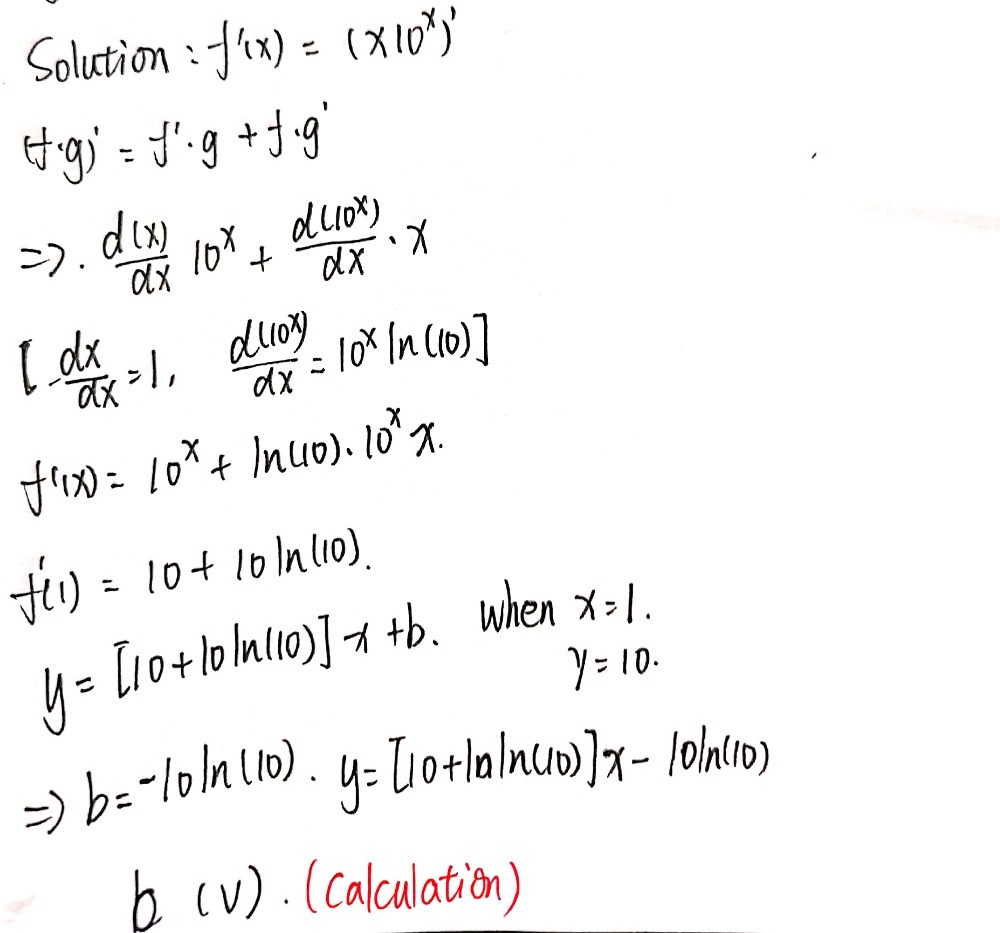 Solution : f'(x) = (x10^x)'
(f·g)' = f'·g + f·g'
=>. d(x)/dx 10^x + d(10^x)/dx · x
[ dx/dx = 1, d(10^x)/dx = 10^x ln(10) ]
f'(x) = 10^x + ln(10). 10^x x.
f'(1) = 10 + 10 ln(10).
y = [10+10ln(10)] x + b. when x=1.
y=10.
=> b = -10 ln(10). y = [10+10ln(10)]x - 10ln(10)
b (V). (Calculation)